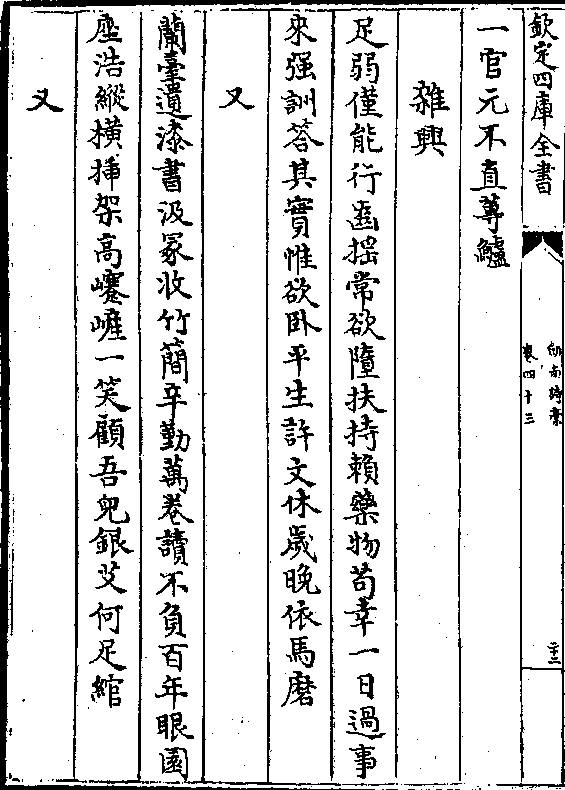 欽定四庫全書
劍南詩稾
卷四十三
二十三
一官元不直蓴鱸
雜興
足弱僅能行齒揺常欲墮扶持賴藥物茍幸一日過事
來强詶答其實惟欲卧平生許文休歲晚依馬磨
又
蘭臺遺漆書汲冡收竹簡辛勤萬卷讀不負百年眼園
廛浩縱橫揷架高𡾰嵼一笑顧吾兒銀艾何足綰
又